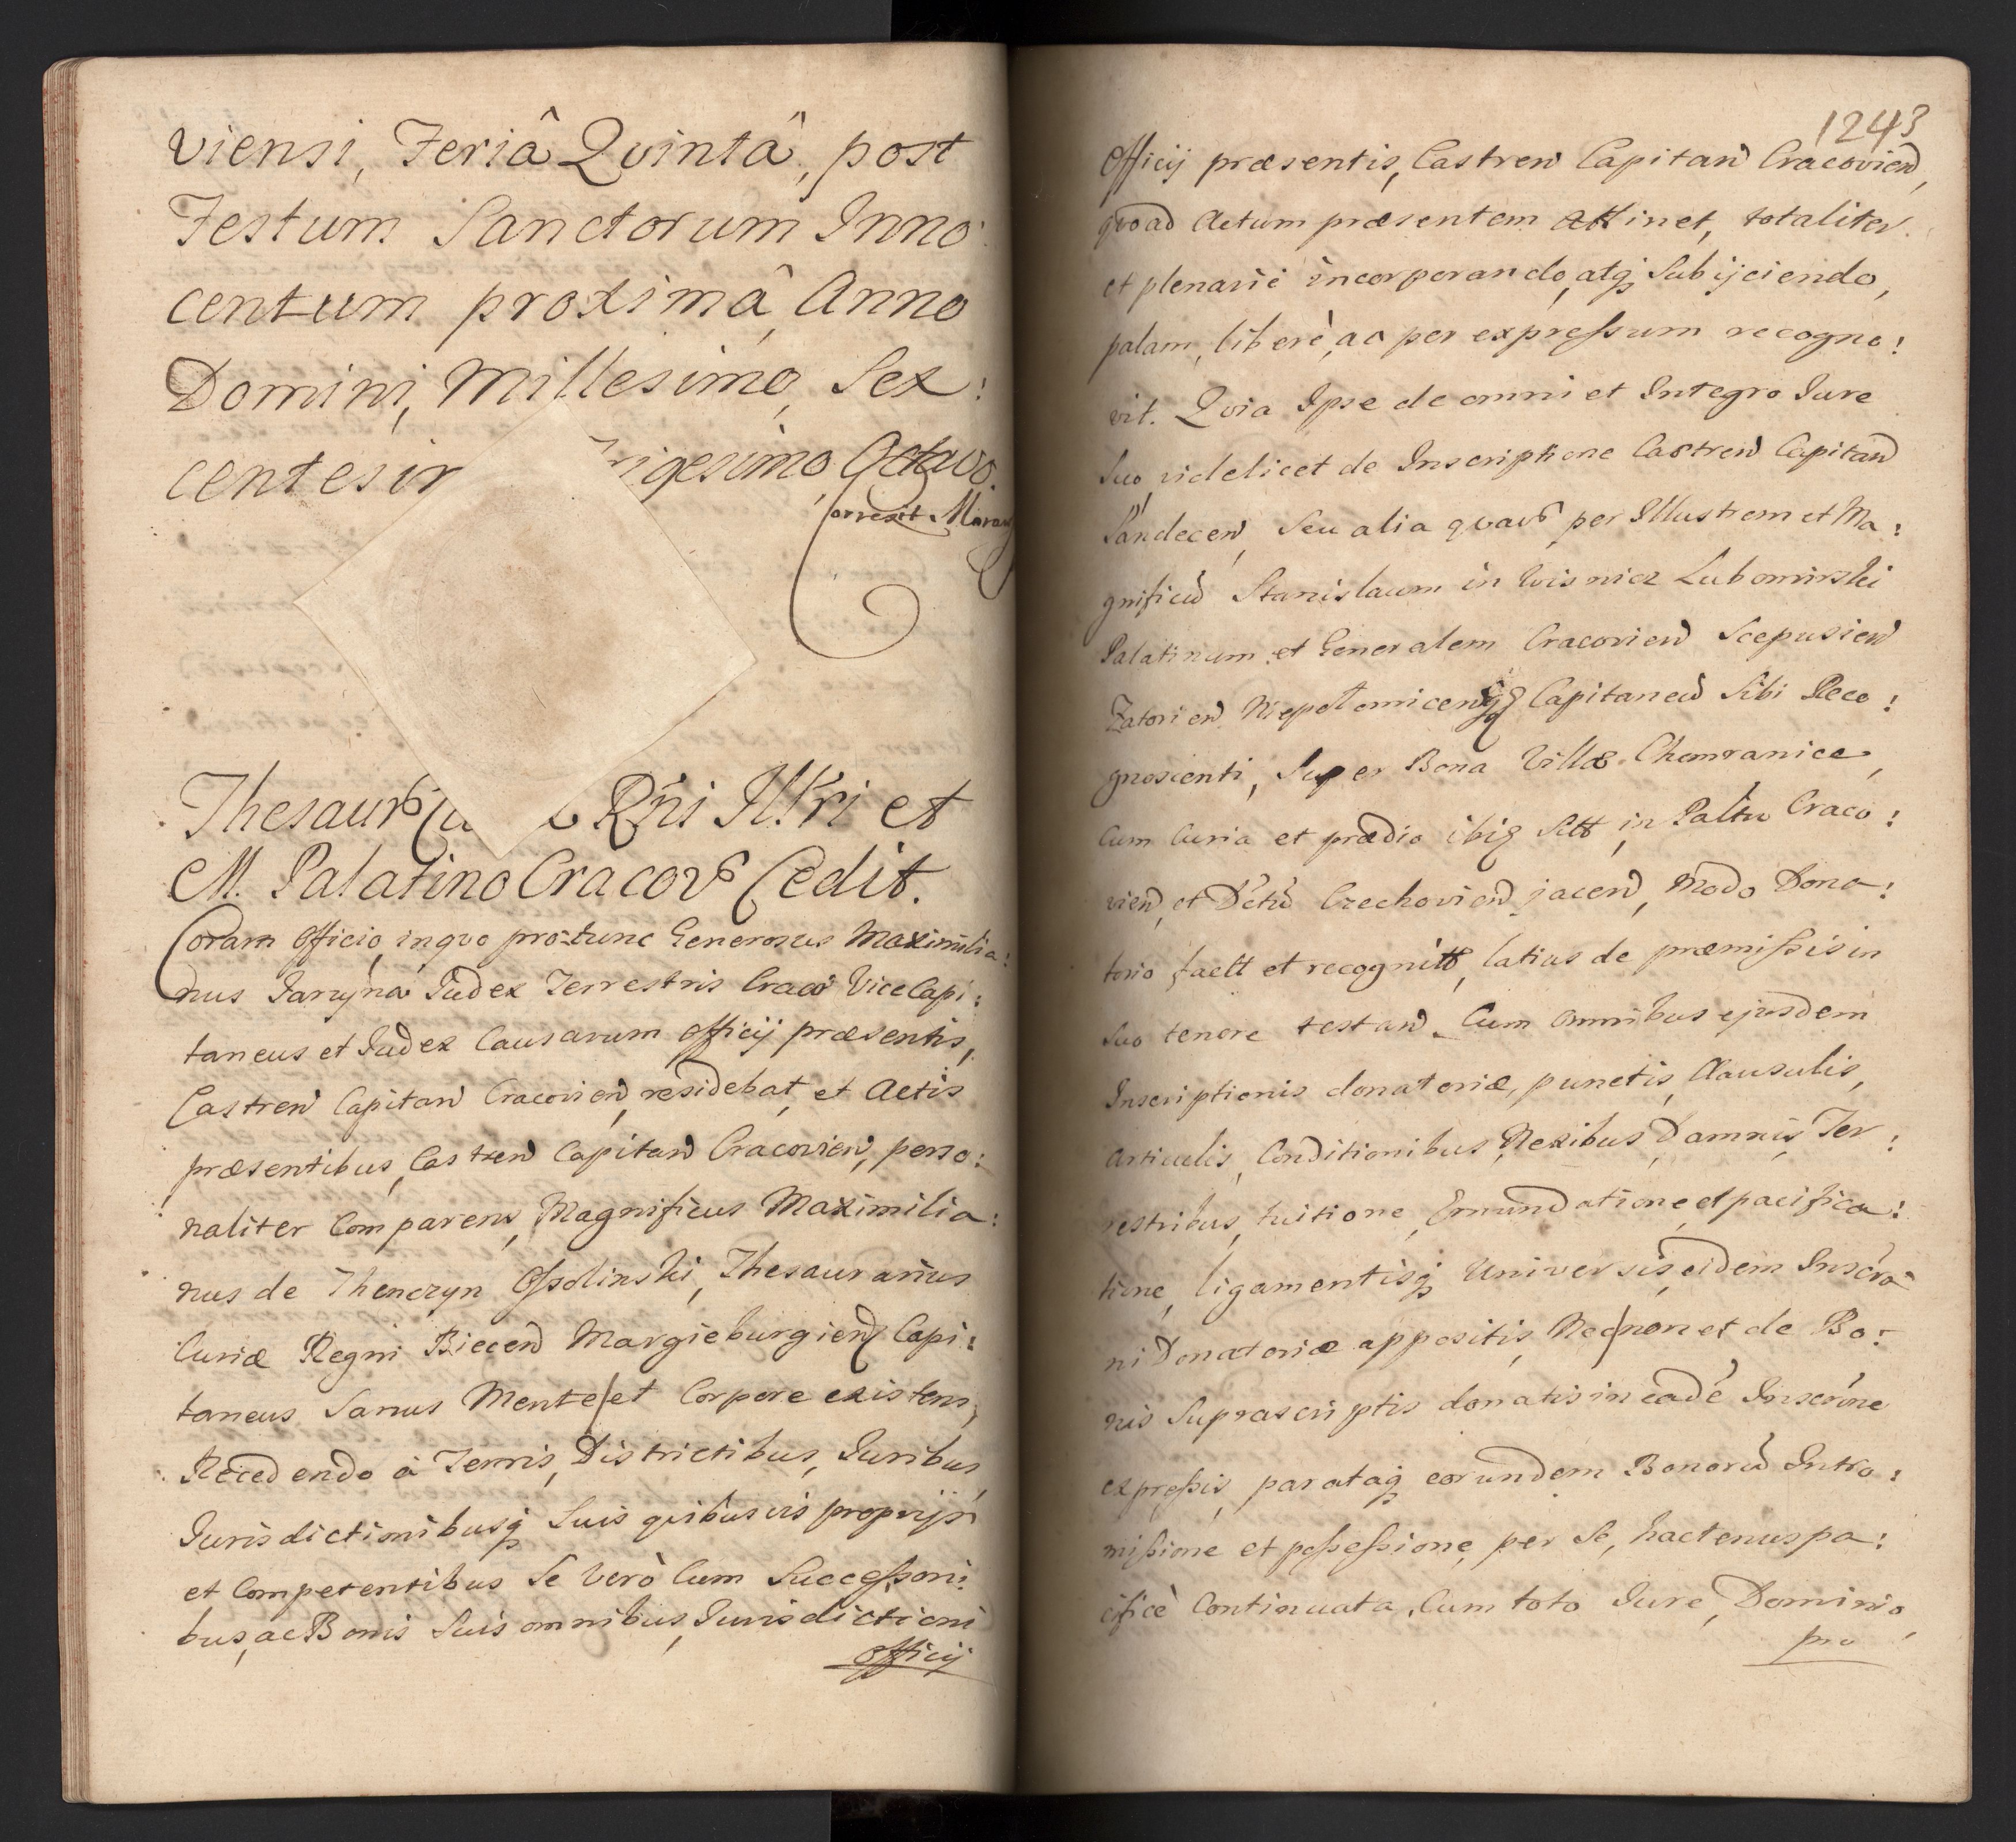 viensi, Feriâ Qvintâ, post
Festum Sanctorum Inno:
centum proximâ Anno
Domini, Millesimo, Sex:
centesi rigesimo Octavo.
Correxit
Thesaur Cu Rñi Illri et
M. Palatino Cracov Cedit.
Coram Officio, inqvo protunc Generosus Maximilia:
nus Jaryna Judex Terrestris Craco ViceCapi:
taneus et Judex Causarum Officij præsentis,
Castren Capitan Cracovien, residebat, et Actis
præsentibus, Castren Capitan Cracovien, perso:
naliter Comparens, Magnificus Maximilia:
nus de Thenczyn Ossolinski, Thesaurarius
Curiæ Regni Biecen Margieburgien Capi:
taneus Sanus Mente et Corpore existens,
Recedendo à Terris, Districtibus, Juribus,
Jurisdictionibusq Suis qvibusvis proprijs
et Competentibus Se verò Cum Successori:
bus, ac Bonis Suis omnibus, Jurisdictioni
Officij
1243
Officij præsentis, Castren Capitan Cracovien,
qvoad Actum præsentem attinet, totaliter
et plenariè incorporando, atq Subijciendo,
palam, liberè, ac per expressum recogno:
vit. Qvia Ipse de omni et Integro Jure
Suo, videlicet de Inscriptione Castren Capitan
Sandecen, Seu alia qvavs per Illustrem et Ma:
gnificu Stanislaum in Wisnicz Lubomirski
Palatinum et Generalem Cracovien Scepusien
Zatorien Niepolomicen Capitaneu Sibi Reco:
gnoscenti, Super Bona Villæ Chomranice,
Cum Curia et prædio ibiq Sitt, in Paltu Craco:
vien, et Dctu Czechovien jacen, Modo Dona:
torio fact et recognitt, latius de præmissis in
Suo tenore testan. Cum omnibus ejusdem
Inscriptionis donatoriæ, punctis, Clausulis,
Articulis, Conditionibus, Nexibus, Damnis, Ter:
restribus, tuitione, Emundatione, et pacifica:
tione, ligamentisq Universis, eidem Inscro
ni Donatoriæ appositis, Nec non et de Bo:
nis Suprascriptis donatis in eadé Inscrine
expressis, parataq eorundem Bonoru Intro:
missione et possessione, per Se, hactenus pa:
cificè Continuata, Cum toto Jure, Dominio,
pro